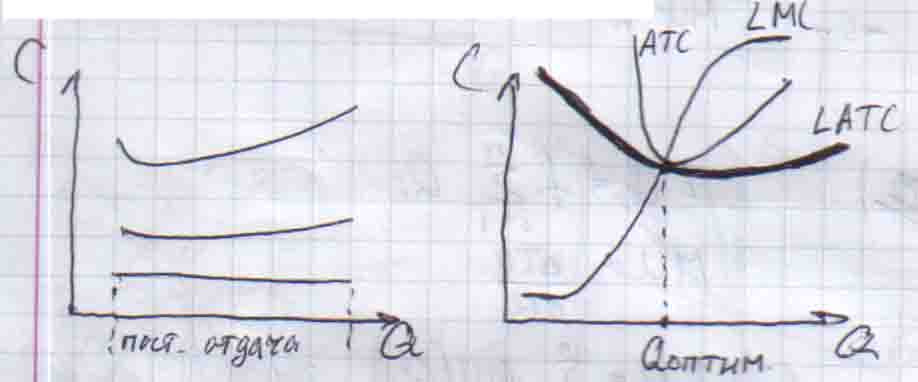 C
пост. отдача
Q
C
ATC
LMC
LATC
Qоптим.
Q